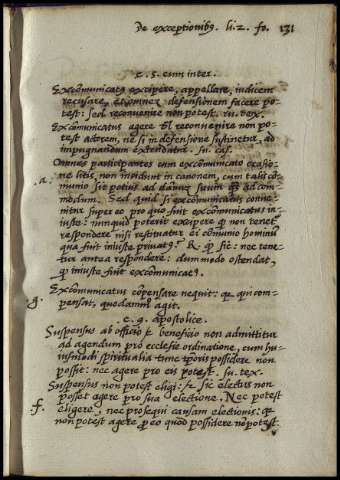 De exceptionib9. li. 2. fo. 131
c. 5. cum inter.
Excōmunicat9 excipere, appellare, iudicem
recusare, et omnem defensionem facere po-
test: sed reconvenire non potest. in. tex.
Excōmunicatus agere vel reconvenire non po-
test actorem, ne si in defensione sustinetur, ad
impugnandum extendatur. su. cas.
Omnes participantes cum excōmunicato occasio-
ne litis, non incidunt in canonem, cum talis cō-
a. munio sit potius ad damnū suum quam ad com-
modum. Sed quid si excōmunicatus conve-
nitur super eo pro quo fuit excōmunicatus in-
iuste: nunquid poterit excipere q non tenet
respondere nisi restituatur ei cōmunio hominū
qua fuit iniuste privat9? R. q sic: nec tene-
tur antea respondere: dummodo ostendat,
q iniuste fuit excōmunicat9.
g. Excōmunicatus cōpensare nequit: qr qui com-
pensat, quodammō agit.
c. 9. apostolice.
Suspensus ab officio et beneficio non admittitur
ad agendum pro ecclesie ordinatione, cum hu-
iusmodi spiritualia tunc tp̄oris possidere non
possit: nec agere pro eis potest. su. tex.
Suspensus non potest eligi: et sic electus non
posset agere pro sua electione. Nec potest
f. eligere, nec prosequi causam electionis: qr
non potest agere p eo quod possidere nō potest.